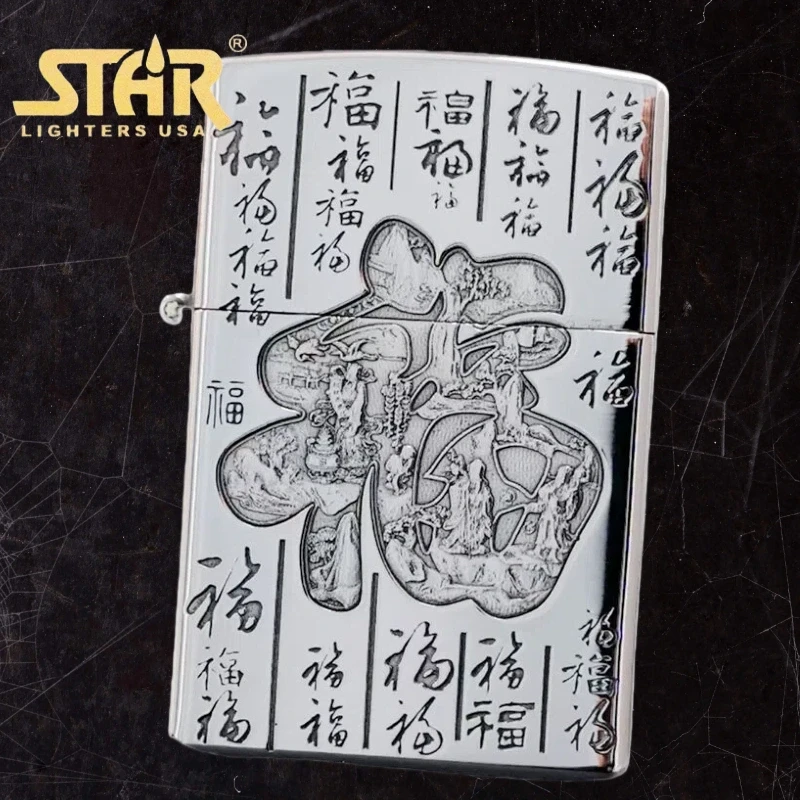 STAR®
LIGHTERS USA
福福福福
福福福福
福福福
福福福
福福福
福
福
福
福福福
福福
福福
福福
福福福